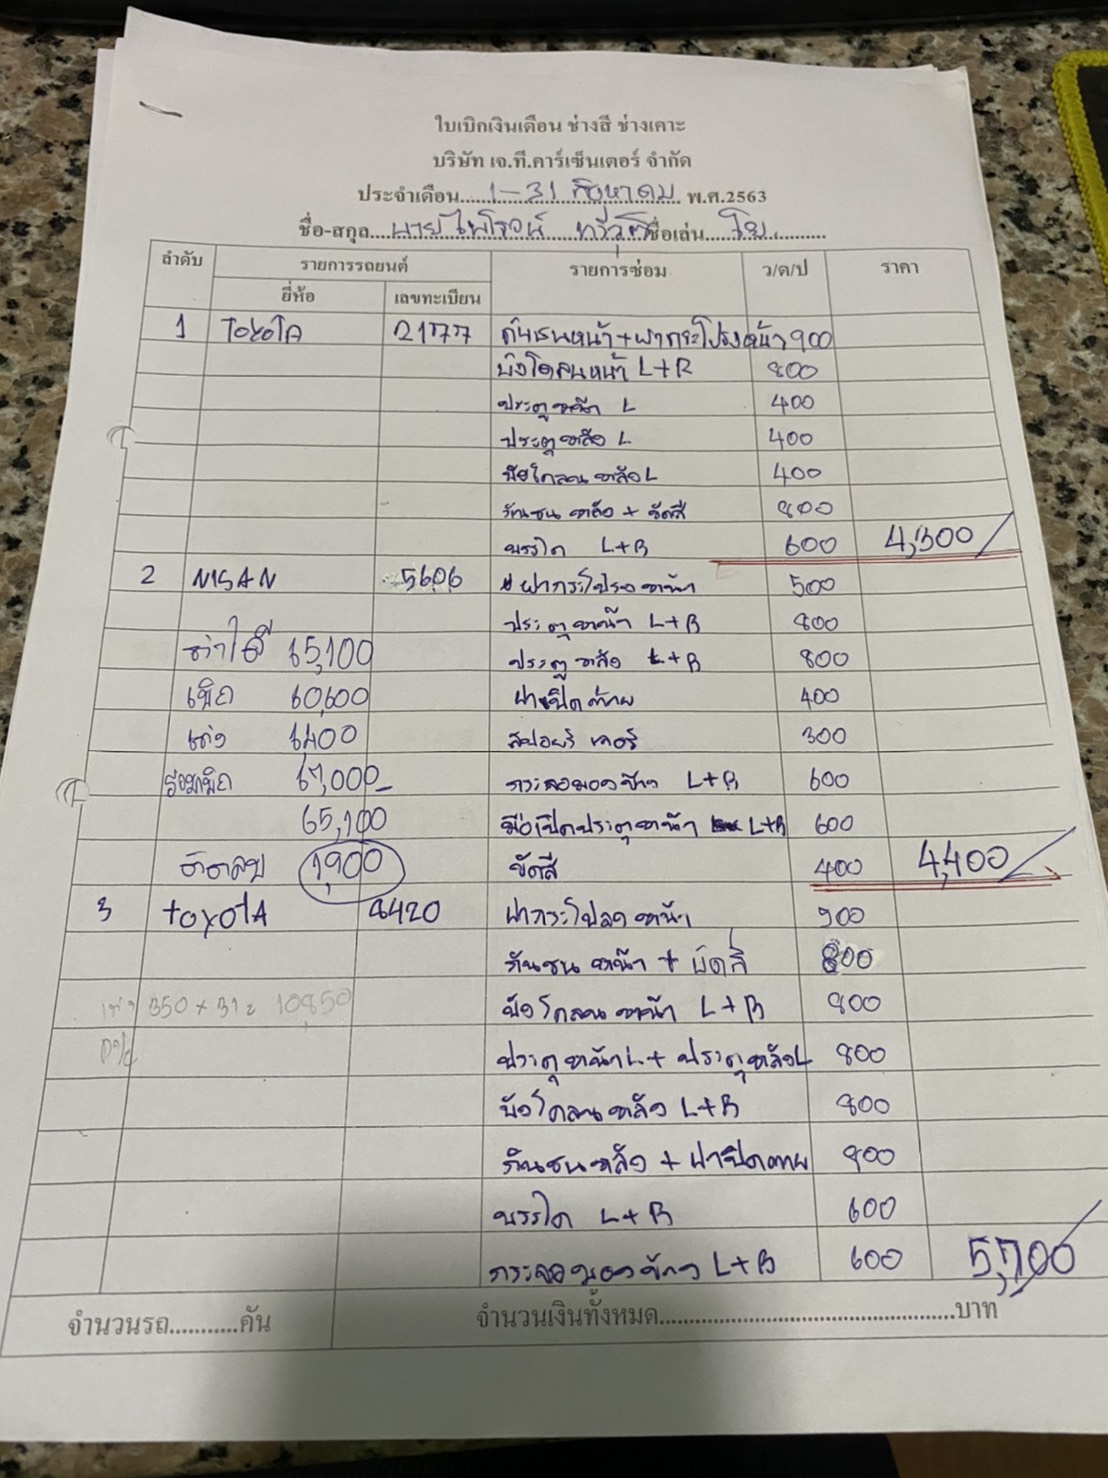 ใบเบิกเงินเดือน ช่างสี ช่างเคาะ
บริษัท เจ.ที.คาร์เซ็นเตอร์ จำกัด
ประจำเดือน.....1-31 สิงหาคม พ.ศ.2563
ชื่อ-สกุล....นาย ไพโรจน์ ชื่อเล่น....โย.
ลำดับ รายการรถยนต์ รายการซ่อม ว/ด/ป ราคา
ยี่ห้อ เลขทะเบียน
1 TOYOTA กันชนหน้า+ฝากระโปรงหน้า 900
บังโคลนหน้า L+R 800
ประตูหน้า L 400
ประตูหลัง L 400
บังโคลนหลัง L 400
กันชนหลัง + ขัดสี 800
บรรได L+R 600 4,300/
2 NISAN 5606 ฝากระโปรงหน้า 500
ประตูหน้า L+R 800
65,100 ประตูหลัง L+R 800
เบิก 60,600 ฝาเปิดท้าย 400
เก๋ง 6,400 สปอยร์เลอร์ 300
รวมเบิก 67,000_ กระจกมองข้าง L+R 600
65,100 มือเปิดประตูหน้า L+R 600
ติดลบ 1,900 ขัดสี 400 4,400/
3 toyotA 8420 ฝากระโปลงหน้า 900
กันชนหน้า + ขัดสี 800
350 x 31 = 10,850 บังโคลนหน้า L+R 800
ประตูหน้า L + ประตูหลัง L 800
บังโคลนหลัง L+R 800
กันชนหลัง + ฝาปิดท้าย 800
บรรได L+R 600
กระจกมองข้าง L+R 600 5,700
จำนวนรถ...........คัน จำนวนเงินทั้งหมด................................................บาท